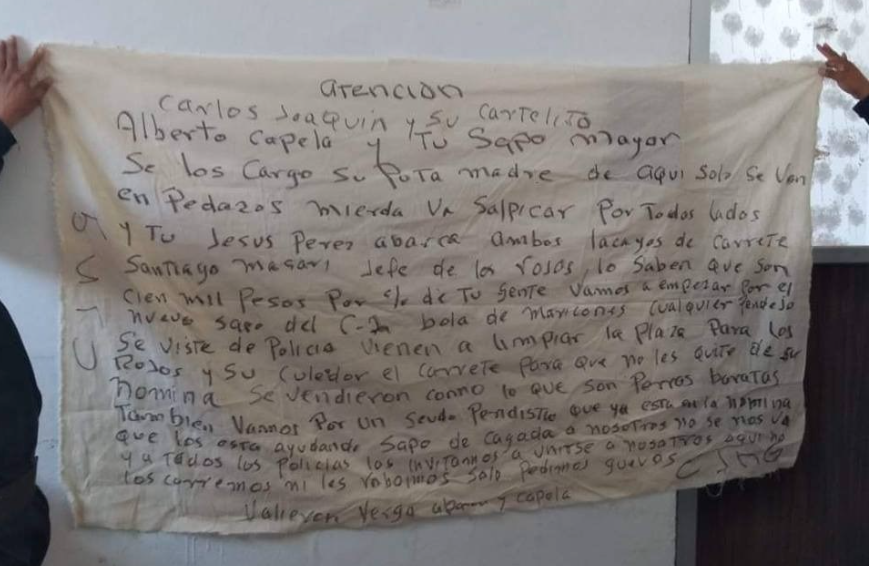 atencion
Carlos Joaquin y su cartelito
Alberto Capela y Tu Sapo mayor
Se los Cargo su Puta madre de aqui solo se van
en Pedazos mierda va Salpicar Por Todos lados
y Tu Jesus Perez abarca ambos lacayos de Carrete
Santiago masari Jefe de los rojos, lo Saben que son
Cien mil Pesos Por c/u de Tu gente Vamos a empezar Por el
nuevo sapo del C-2n bola de maricones Cualquier Pendejo
Se viste de Policia vienen a limpiar la Plaza Para los
Rojos y su Culeador el carrete Para que no les quite de su
nomina Se vendieron como lo que son Perras baratas
Tambien Vamos Por un Seudo Periodista que ya esta en la nomina
que los esta ayudando Sapo de cagada a nosotros no se nos va
y a Todos los Policias los invitamos a unirse a nosotros aqui no
los corremos ni les robamos Solo Pedimos guevos CJNG
Valieron Verga abarca y capela